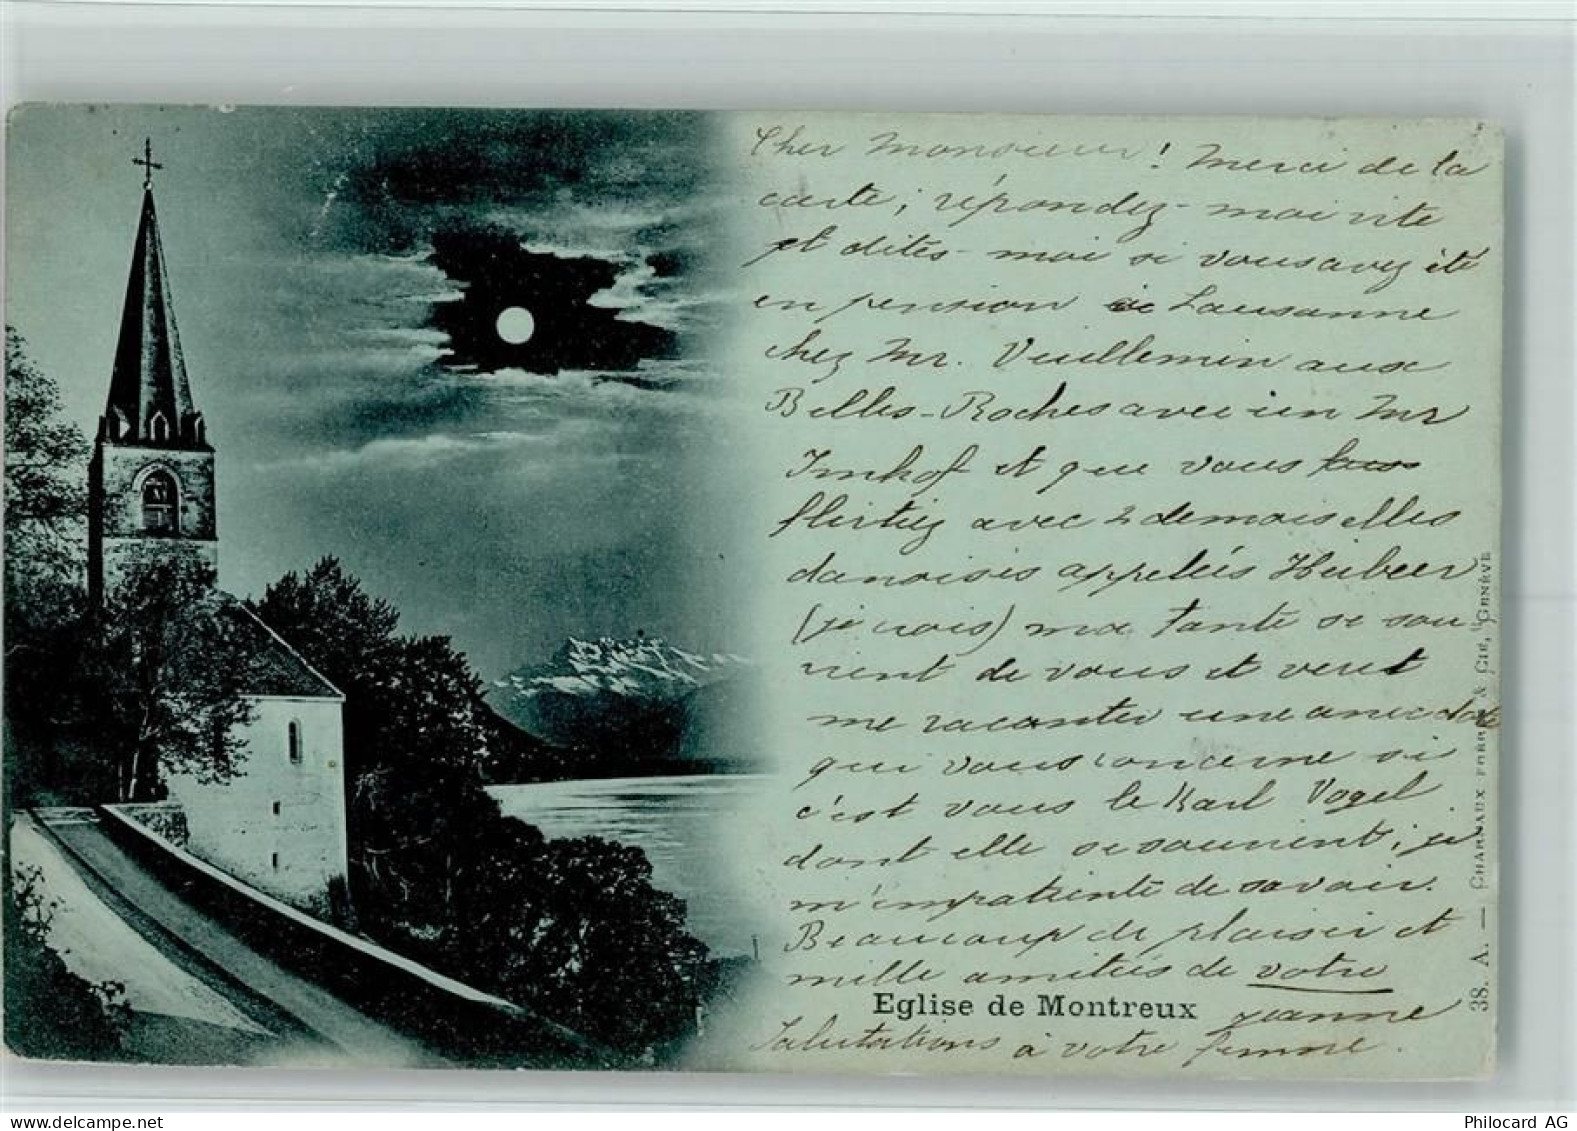 Cher Monsieur! Merci de la
carte; répondez-moi vite
et dites-moi si vous avez été
en pension à Lausanne
chez Mr. Vuillemin aux
Belles-Roches avec un Mr
Imhof et que vous
flirtiez avec 2 demoiselles
danoises appelés Heibeer
(je crois) ma tante se sou
vient de vous et veut
me raconter une anecdote
qui vous concerne si
c'est vous le Karl Vogel
dont elle se souvient; je
m'impatiente de savoir.
Beaucoup de plaisir et
mille amitiés de votre
Jeanne
Salutations à votre femme.
Eglise de Montreux
38. A. — CHARNAUX FRÈRES & CIE, GENÈVE
www.delcampe.net
Philocard AG